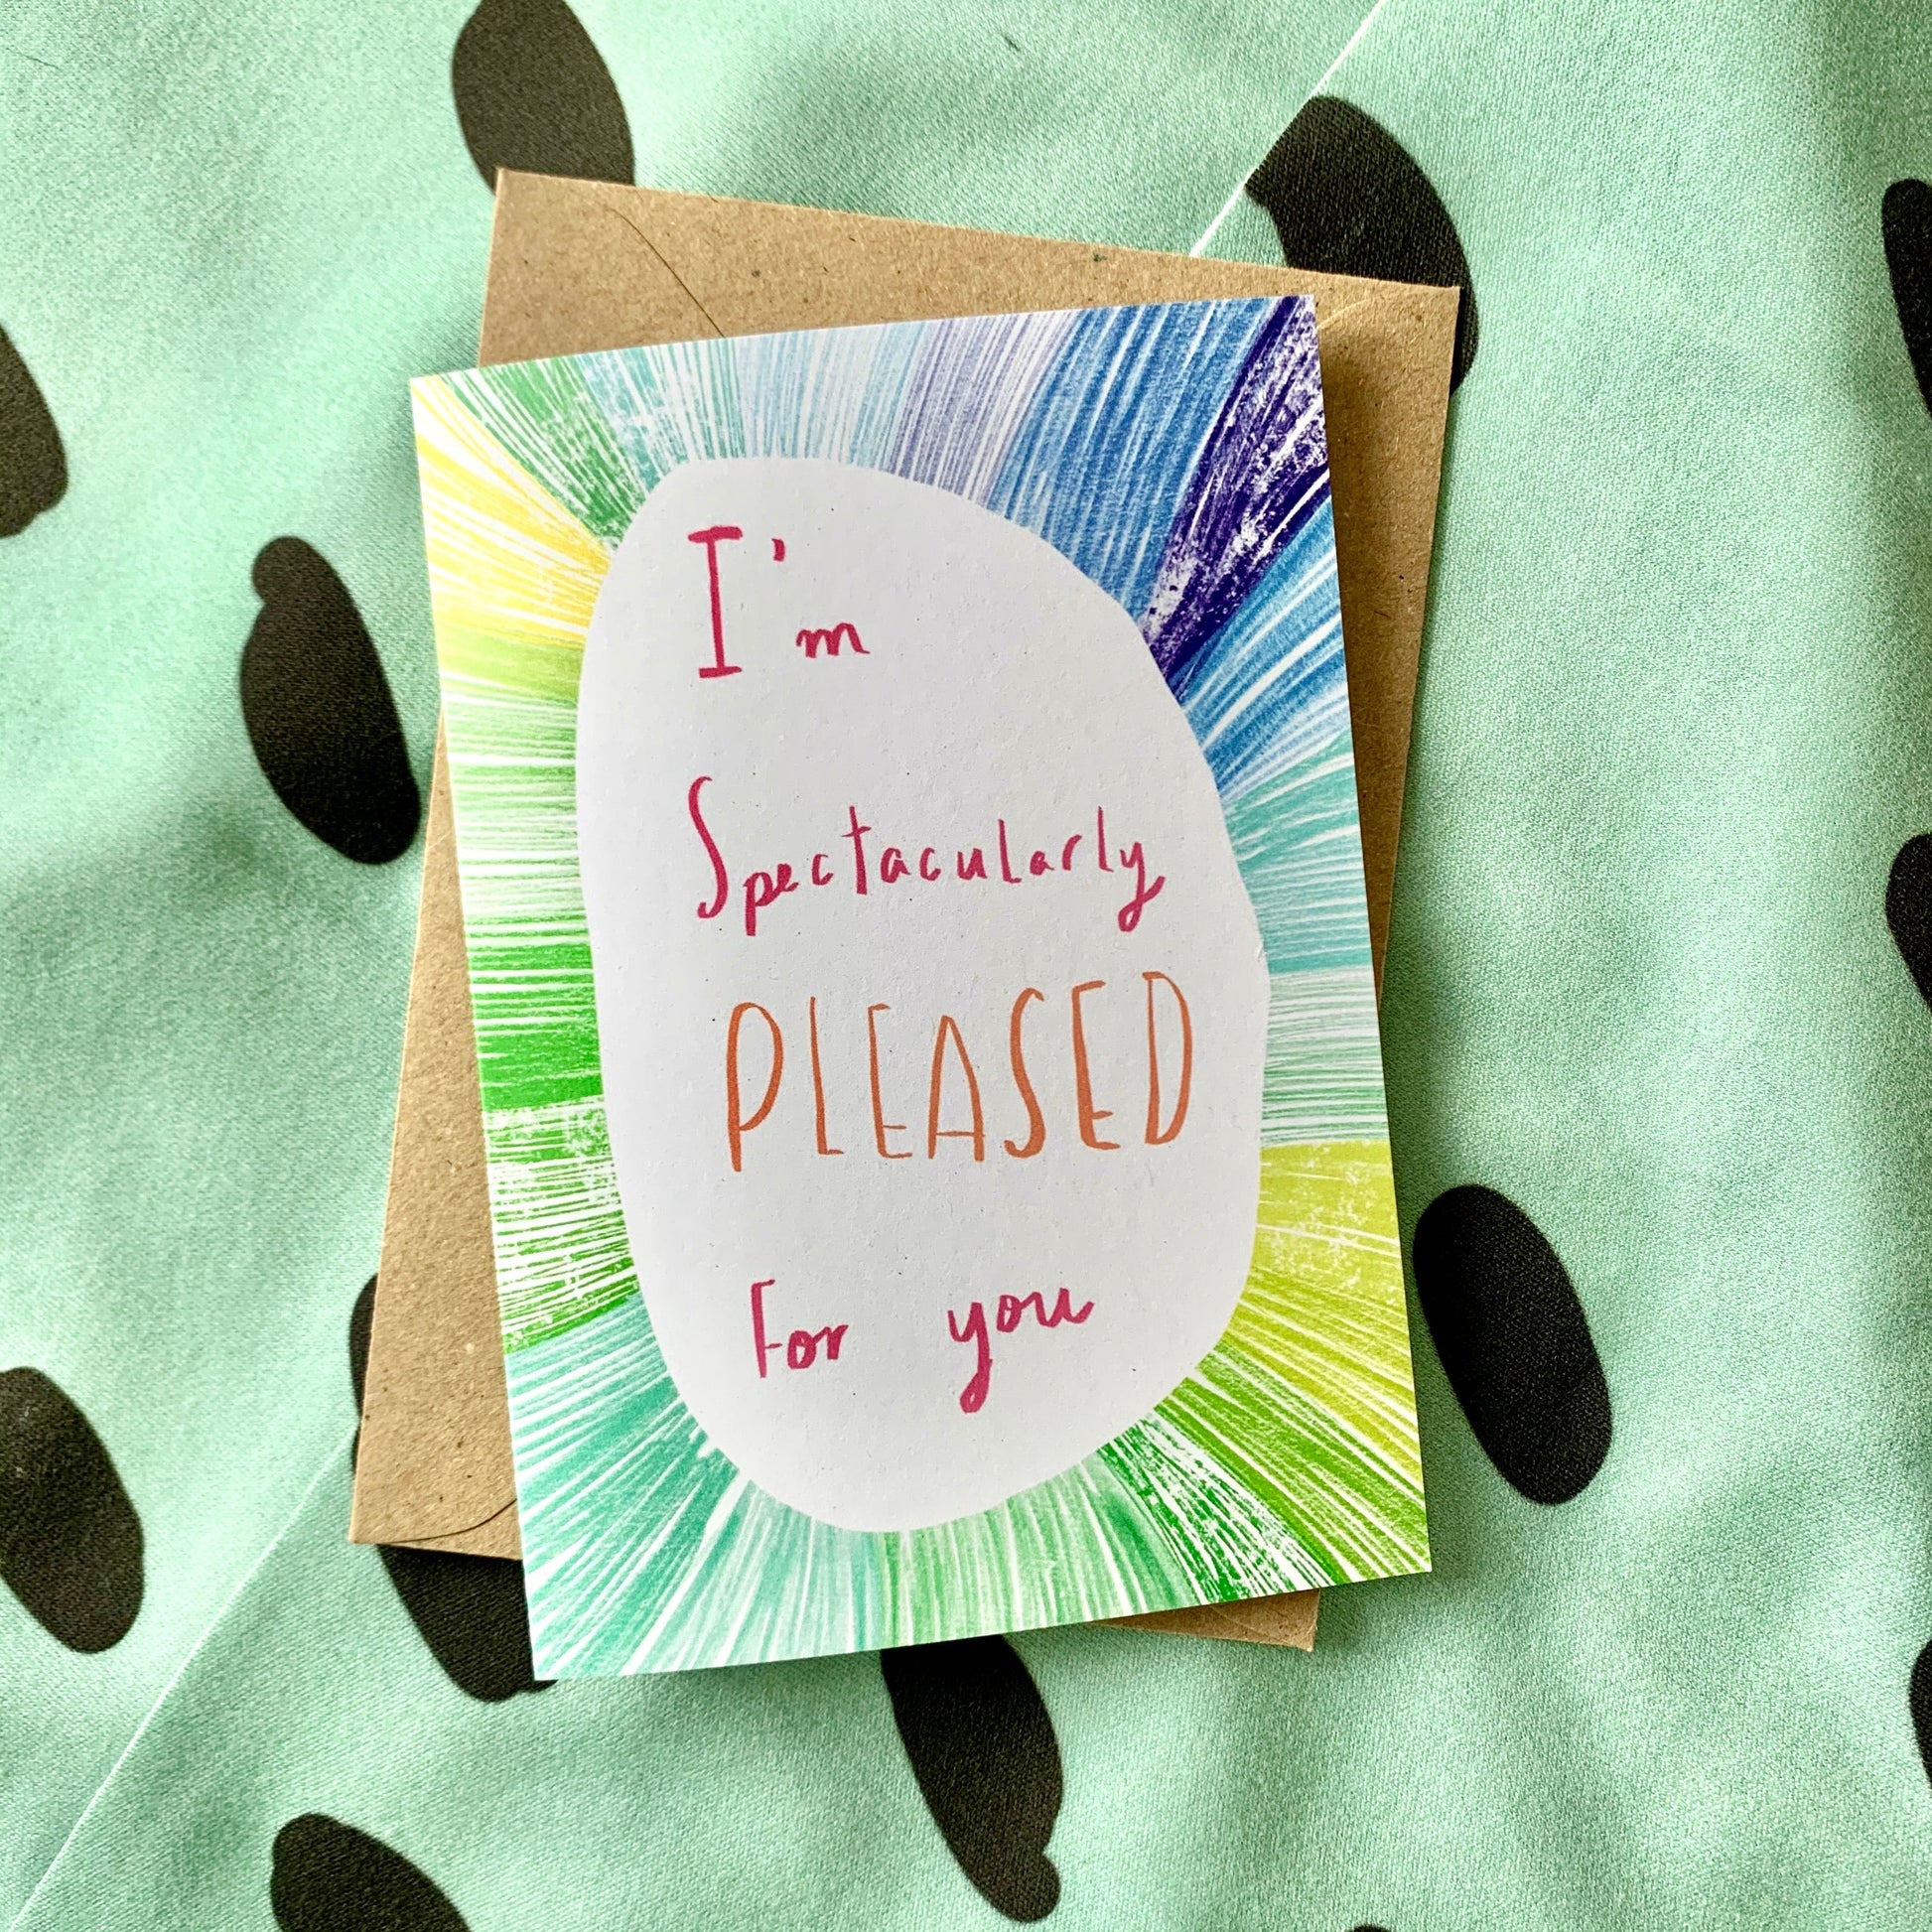 I'm
Spectacularly
PLEASED
For you